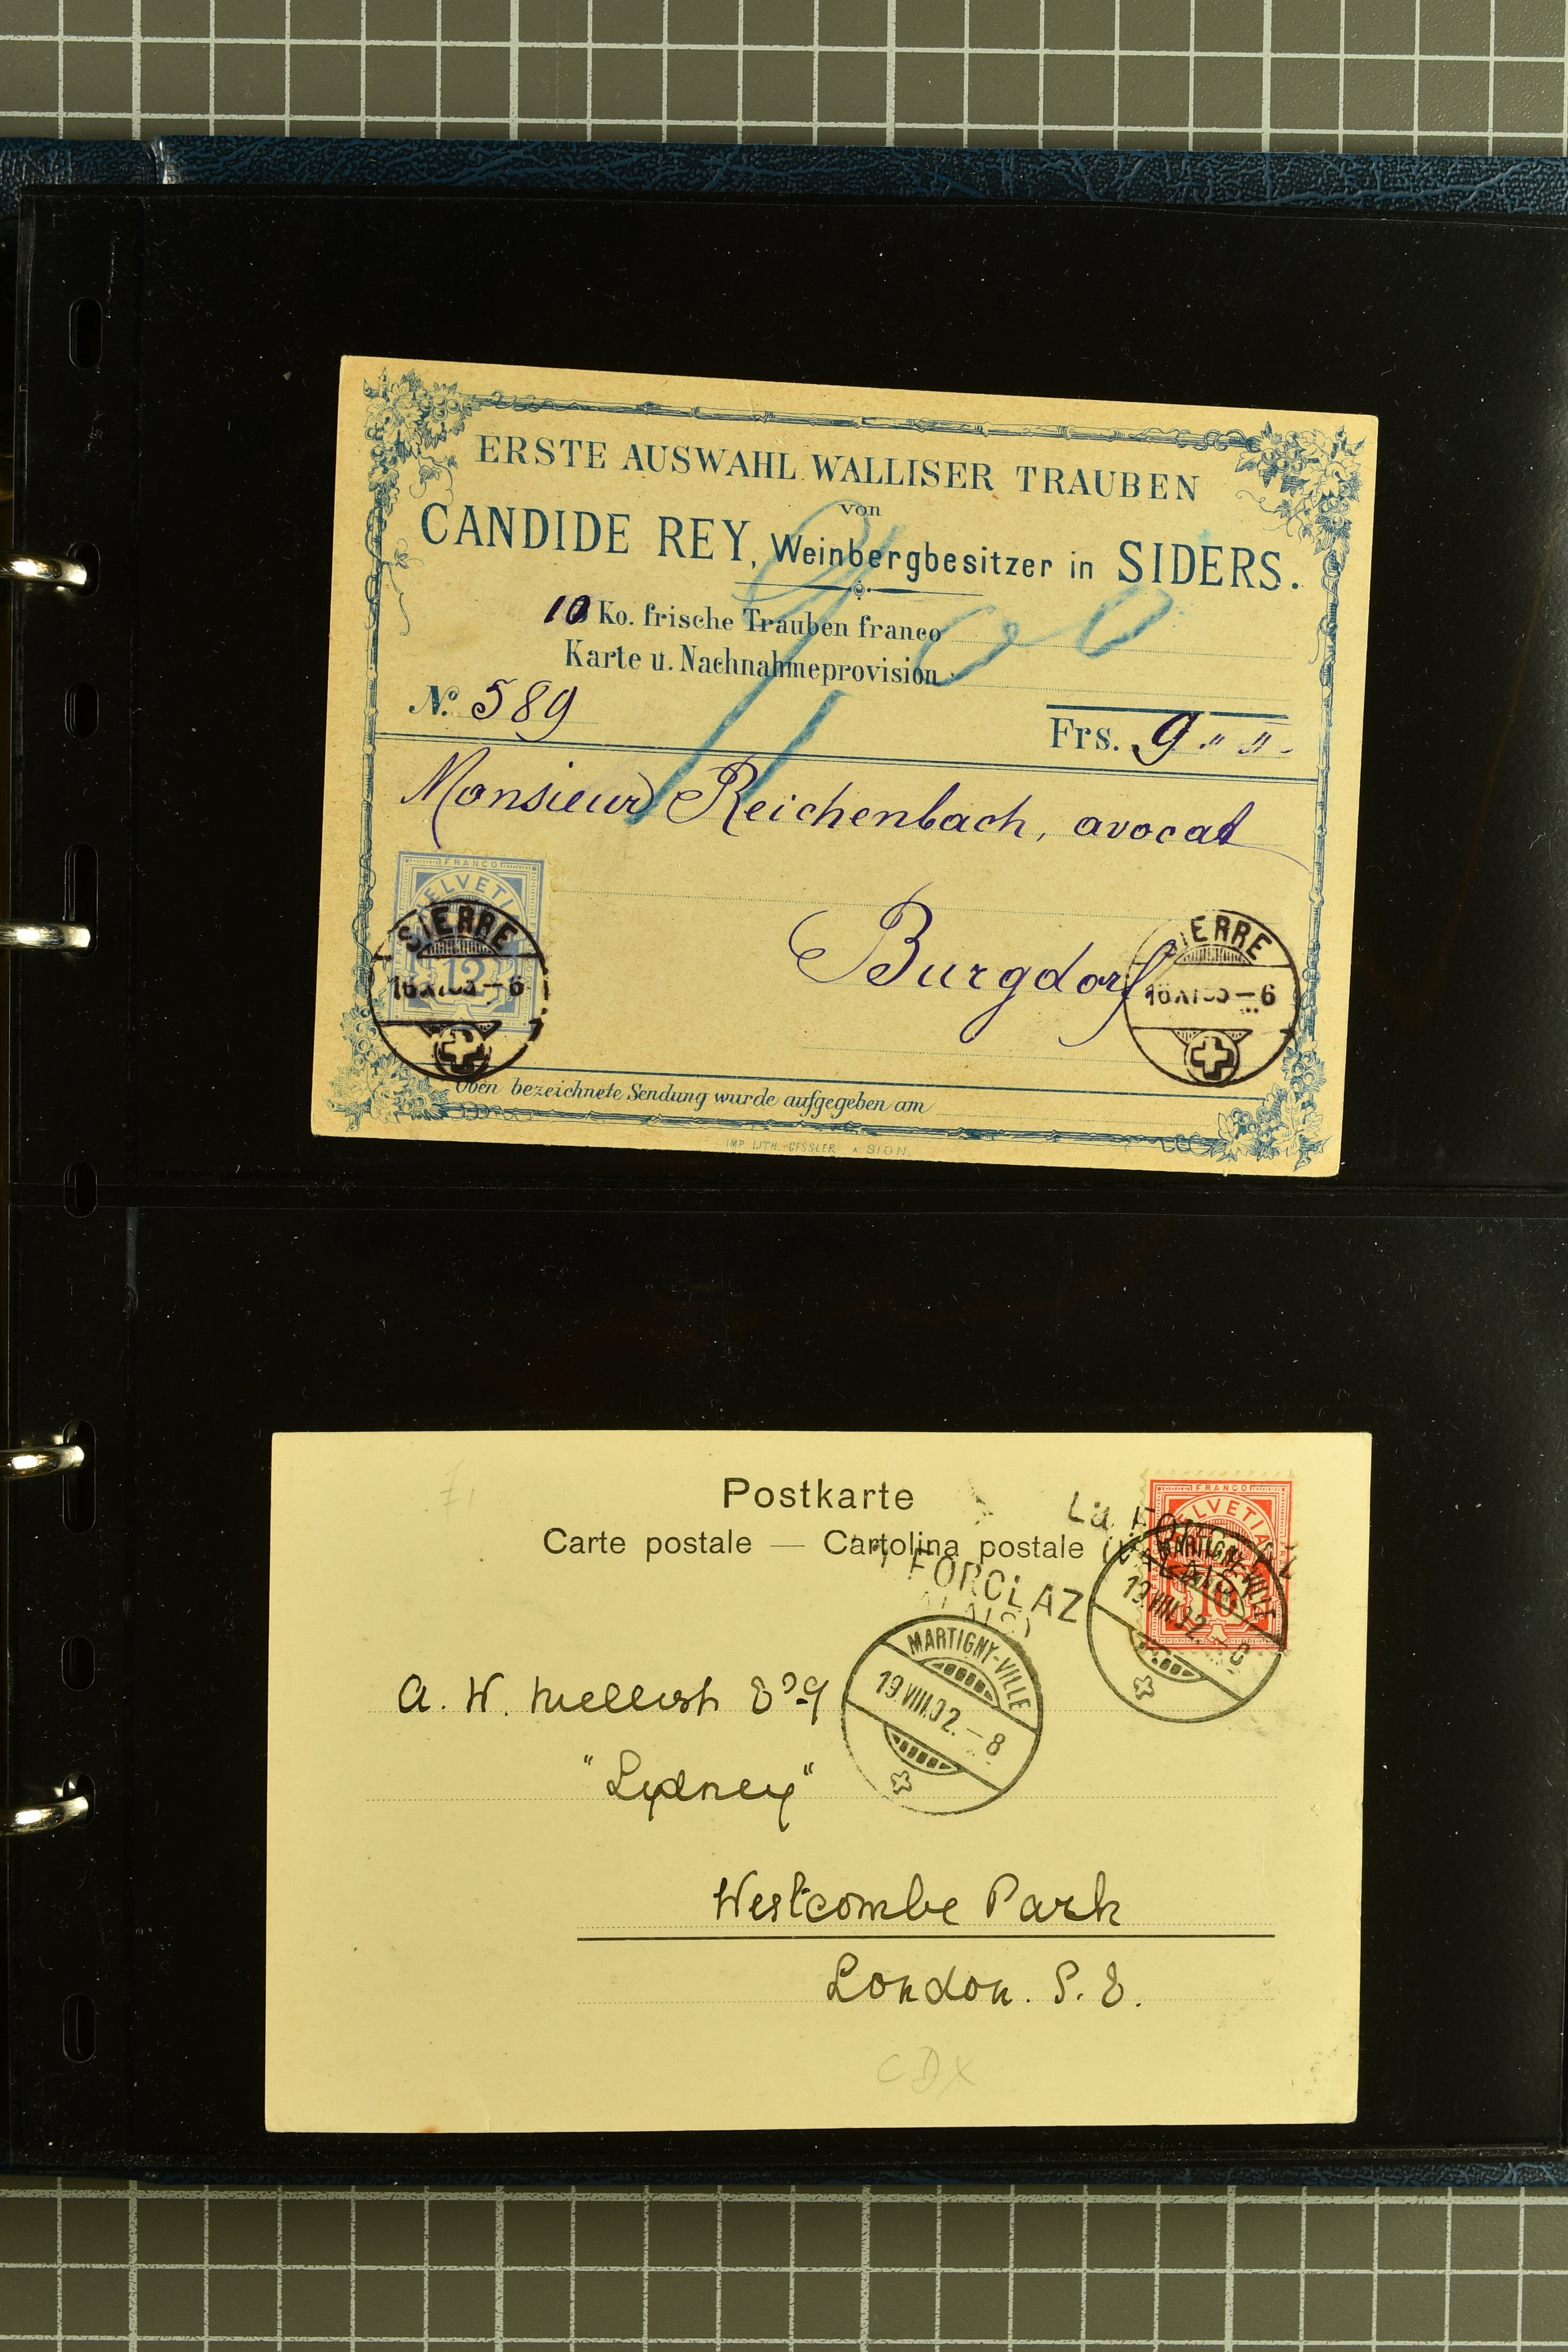 ERSTE AUSWAHL WALLISER TRAUBEN
von
CANDIDE REY, Weinbergbesitzer in SIDERS.
10 Ko. frische Trauben franco
Karte u. Nachnahmeprovision
900
No. 589
Frs. 9 " "
Monsieur Reichenbach, avocat
FRANCO
HELVETIA
12
Burgdorf
SIERRE
SIERRE
Oben bezeichnete Sendung wurde aufgegeben am
IMP. LITH. GESSLER A SION.
Postkarte
Carte postale — Cartolina postale
La FORCLAZ
(VALAIS)
FRANCO
HELVETIA
10
MARTIGNY-VILLE
19.VIII.02
FORCLAZ
MARTIGNY-VILLE
19.VIII.02.-8
A. W. Mellish Esq
"Lydney"
Westcombe Park
London. S. E.
CDX